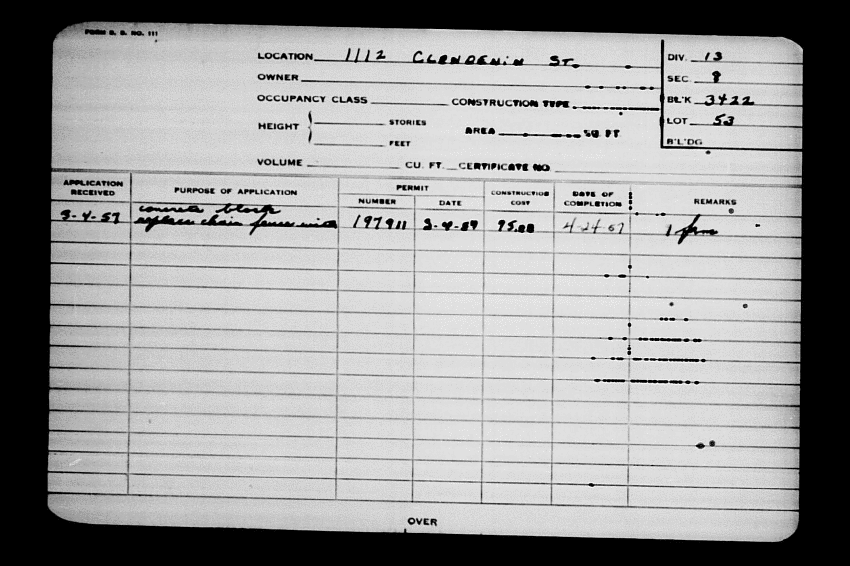 FORM B. D. NO. 111
LOCATION 1112 CLENDENIN ST.
DIV. 13
OWNER
SEC 9
OCCUPANCY CLASS CONSTRUCTION TYPE
BL'K 3422
HEIGHT STORIES
AREA SQ. FT.
LOT 53
FEET
B'L'DG
VOLUME CU. FT. CERTIFICATE NO
APPLICATION RECEIVED PURPOSE OF APPLICATION PERMIT CONSTRUCTION COST DATE OF COMPLETION REMARKS
NUMBER DATE
concrete block
3-4-57 replace chain fence with 197911 3-4-57 95.00 4-24-57 1
OVER